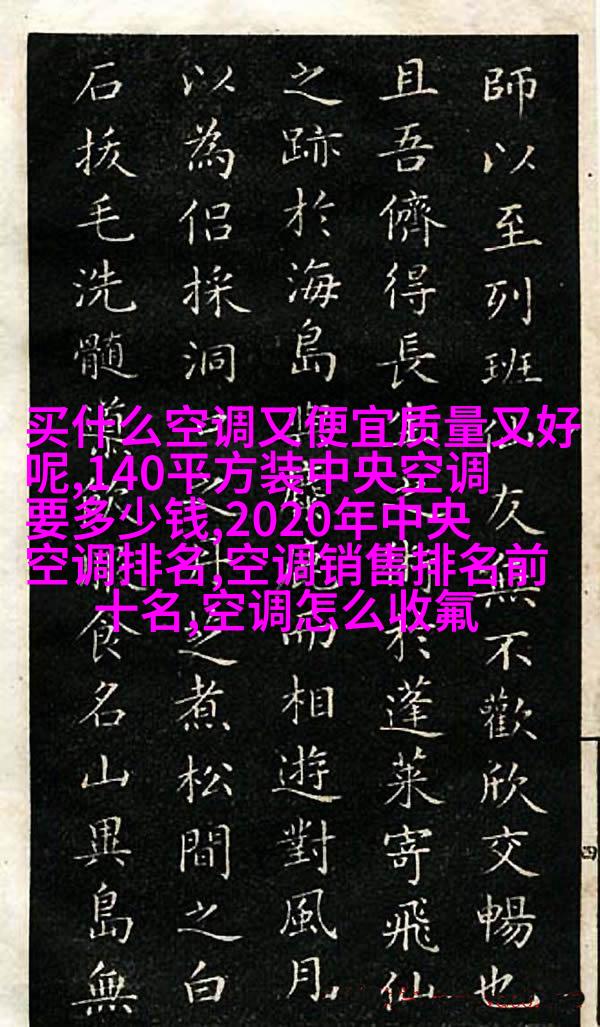 买什么空调又便宜质量又好
呢,140平方装中央空调
要多少钱,2020年中央
空调排名,空调销售排名前
十名,空调怎么收氟
師以至列班仙友無不歡欣交暢也
且吾儕得長於蓬萊寄飛仙
之跡於海島而相遊對風月
以為侶採洞之煮松間之白
石拔毛洗髓食名山異島無